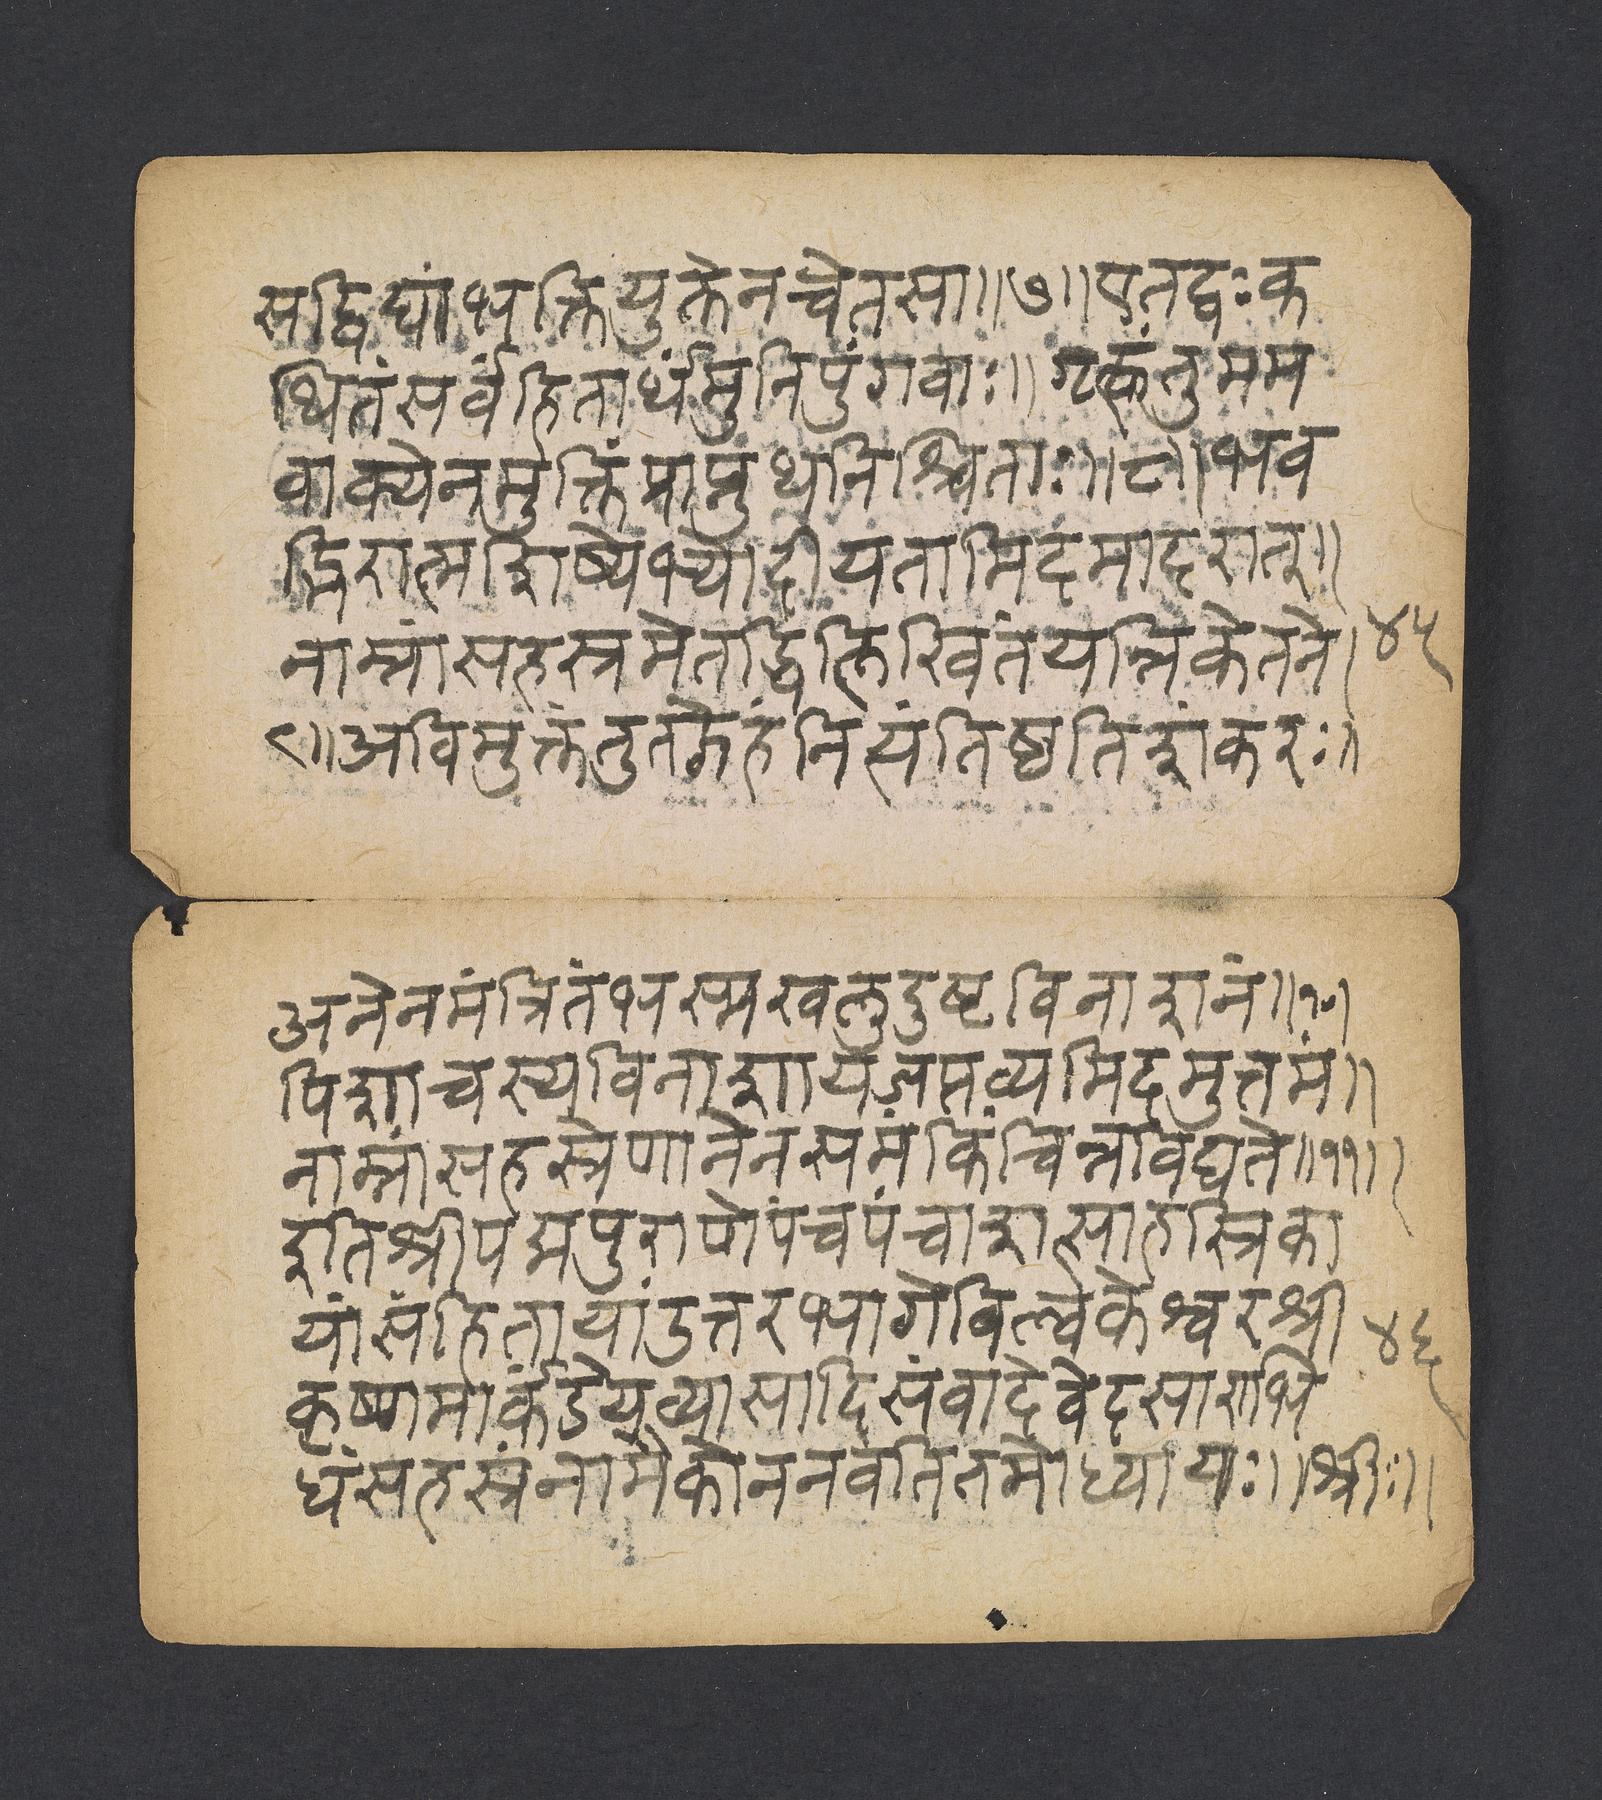 सद्विद्यांभक्तियुक्तेनचेतसा॥७॥एतद्वःक
थितंसर्वहितार्थंमुनिपुंगवाः॥ तुमम
वाक्येनमुक्तिंप्राप्नुथनिश्चिताः॥८॥भव
द्भिरात्मशिष्येभ्योदीयतामिदमादरात्॥
नाम्नांसहस्रमेतद्धिलिखितंयन्निकेतने।४५
९॥अविमुक्तंतुतद्गेहंनित्यंतिष्ठतिशंकरः॥
अनेनमंत्रितंभस्मखलुदुष्टविनाशनं॥१०।
पिशाचस्यविनाशायजप्तव्यमिदमुत्तमं॥
नाम्नांसहस्रेणानेनसमंकिंचिन्नविद्यते॥११॥
इतिश्रीपद्मपुराणेपंचपंचाशत्साहस्रिका
यांसंहितायांउत्तरभागेबिल्वकेश्वरश्री ४६
कृष्णमार्कंडेयव्यासादिसंवादेवेदसाराभि
धंसहस्रंनामैकोननवतितमोध्यायः॥श्रीः॥